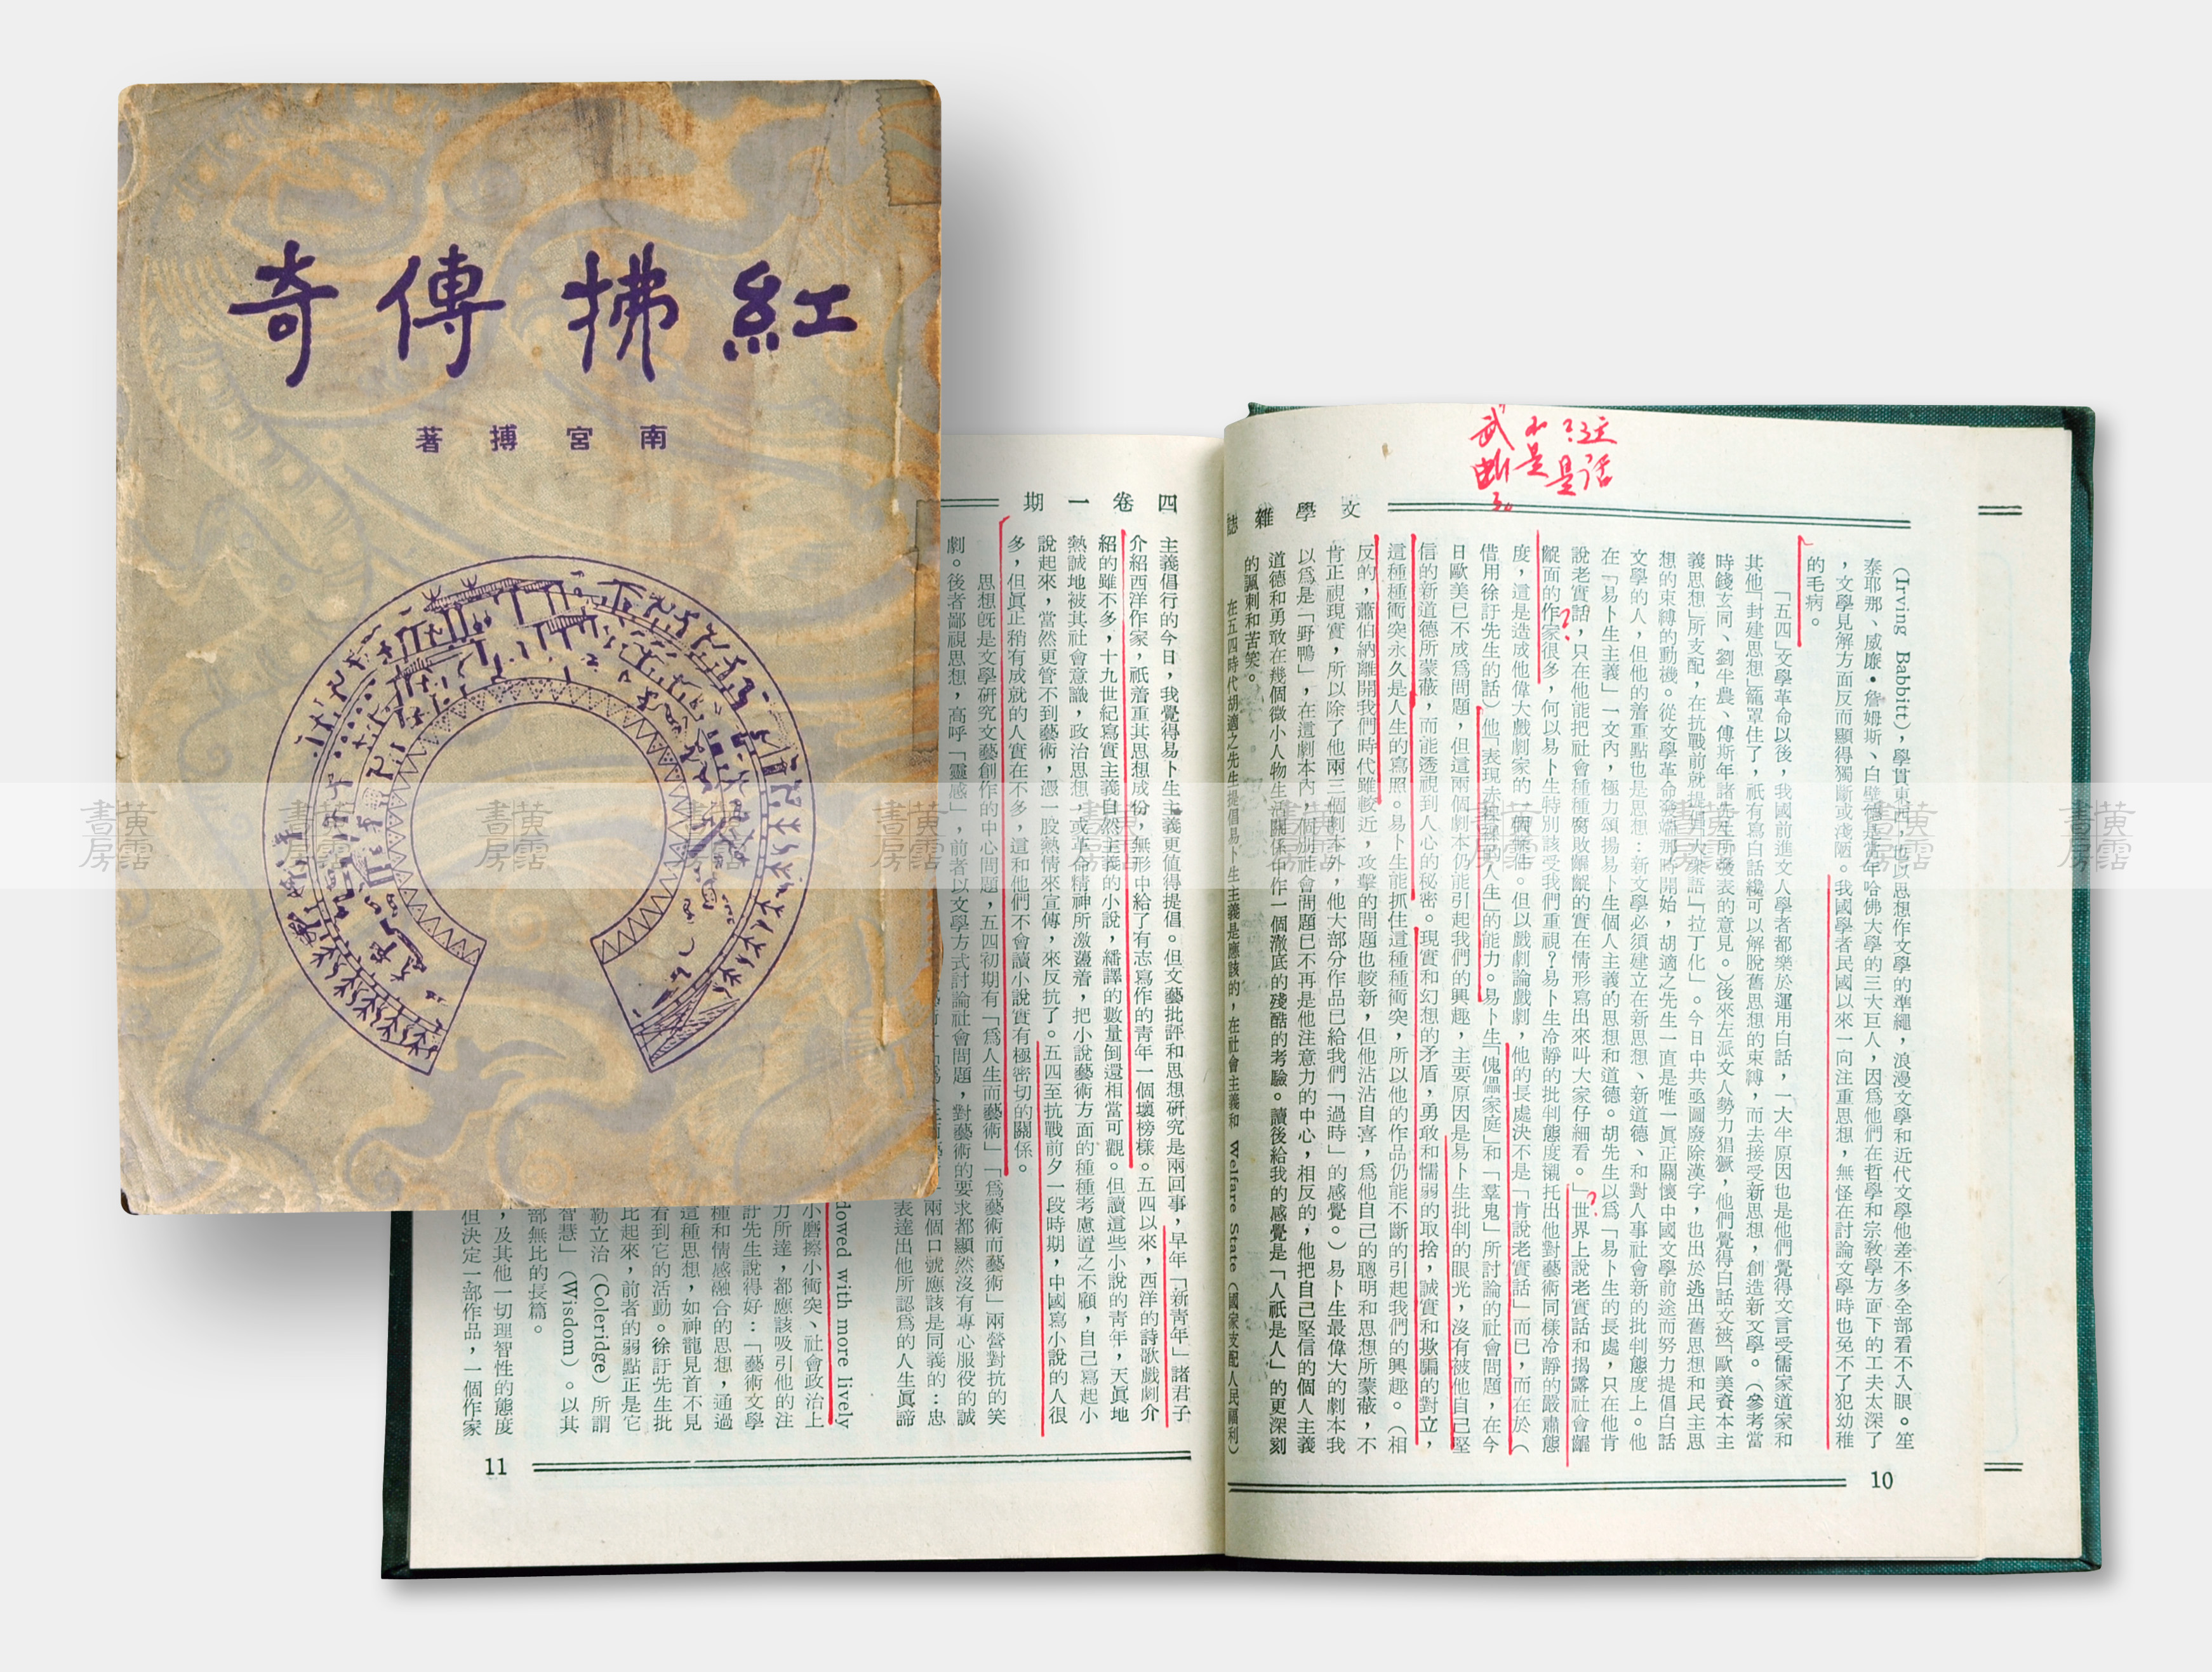 紅拂傳奇
南宮搏著
文學雜誌
(Irving Babbitt)，學貫東西，也以思想作文學的準繩，浪漫文學和近代文學他差不多全部看不入眼。笙
泰耶那、威廉•詹姆斯、白璧德是當年哈佛大學的三大巨人，因爲他們在哲學和宗教學方面下的工夫太深了
，文學見解方面反而顯得獨斷或淺陋。我國學者民國以來一向注重思想，無怪在討論文學時也免不了犯幼稚
的毛病。
「五四」文學革命以後，我國前進文人學者都樂於運用白話，一大半原因也是他們覺得文言受儒家道家和
其他「封建思想」籠罩住了，祇有寫白話纔可以解脫舊思想的束縛，而去接受新思想，創造新文學。（參考當
時錢玄同、劉半農、傅斯年諸先生所發表的意見。）後來左派文人勢力猖獗，他們覺得白話文被「歐美資本主
義思想」所支配，在抗戰前就提倡「大衆語」「拉丁化」。今日中共亟圖廢除漢字，也出於逃出舊思想和民主思
想的束縛的動機。從文學革命發端那時開始，胡適之先生一直是唯一眞正關懷中國文學前途而努力提倡白話
文學的人，但他的着重點也是思想：新文學必須建立在新思想、新道德、和對人事社會新的批判態度上。他
在「易卜生主義」一文內，極力頌揚易卜生個人主義的思想和道德。胡先生以爲「易卜生的長處，只在他肯
說老實話，只在他能把社會種種腐敗齷齪的實在情形寫出來叫大家仔細看。」世界上說老實話和揭露社會齷
齪面的作家很多，何以易卜生特別該受我們重視？易卜生冷靜的批判態度襯托出他對藝術同樣冷靜的嚴肅態
度，這是造成他偉大戲劇家的一個條件。但以戲劇論戲劇，他的長處決不是「肯說老實話」而已，而在於（
借用徐訏先生的話）他「表現赤裸裸的人生」的能力。易卜生「傀儡家庭」和「羣鬼」所討論的社會問題，在今
日歐美已不成爲問題，但這兩個劇本仍能引起我們的興趣，主要原因是易卜生批判的眼光，沒有被他自己堅
信的新道德所蒙蔽，而能透視到人心的秘密。現實和幻想的矛盾，勇敢和懦弱的取捨，誠實和欺騙的對立，
這種種衝突永久是人生的寫照。易卜生能抓住這種種衝突，所以他的作品仍能不斷的引起我們的興趣。（相
反的，蕭伯納離開我們時代雖較近，攻擊的問題也較新，但他沾沾自喜，爲他自己的聰明和思想所蒙蔽，不
肯正視現實，所以除了他兩三個劇本外，他大部分作品已給我們「過時」的感覺。）易卜生最偉大的劇本我
以爲是「野鴨」，在這劇本內，個別社會問題已不再是他注意力的中心，相反的，他把自己堅信的個人主義
道德和勇敢在幾個微小人物生活關係中作一個澈底的殘酷的考驗。讀後給我的感覺是「人祇是人」的更深刻
的諷刺和苦笑。
在五四時代胡適之先生提倡易卜生主義是應該的，在社會主義和 Welfare State（國家支配人民福利）
10
武斷
四卷一期
主義倡行的今日，我覺得易卜生主義更值得提倡。但文藝批評和思想研究是兩回事，早年「新靑年」諸君子
介紹西洋作家，祇着重其思想成份，無形中給了有志寫作的靑年一個壞榜樣。五四以來，西洋的詩歌戲劇介
紹的雖不多，十九世紀寫實主義自然主義的小說，繙譯的數量倒還相當可觀。但讀這些小說的靑年，天眞地
熱誠地被其社會意識，政治思想，或革命精神所激盪着，把小說藝術方面的種種考慮置之不顧，自己寫起小
說起來，當然更管不到藝術，憑一股熱情來宣傳，來反抗了。五四至抗戰前夕一段時期，中國寫小說的人很
多，但眞正稍有成就的人實在不多，這和他們不會讀小說實有極密切的關係。
思想旣是文學研究文藝創作的中心問題，五四初期有「爲人生而藝術」「爲藝術而藝術」兩營對抗的笑
劇。後者鄙視思想，高呼「靈感」，前者以文學方式討論社會問題，對藝術的要求都顯然沒有專心服役的誠
兩個口號應該是同義的：忠
表達出他所認爲的人生眞諦
dowed with more lively
小磨擦小衝突、社會政治上
力所達，都應該吸引他的注
訏先生說得好：「藝術文學
種和情感融合的思想，通過
這種思想，如神龍見首不見
看到它的活動。徐訏先生批
比起來，前者的弱點正是它
勒立治 (Coleridge) 所謂
智慧」(Wisdom)。以其
部無比的長篇。
，及其他一切理智性的態度
但決定一部作品，一個作家
11
黃霑書房
黃霑書房
黃霑書房
黃霑書房
黃霑書房
黃霑書房
黃霑書房
黃霑書房
黃霑書房
黃霑書房
黃霑書房